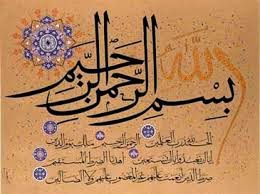 بِسْمِ اللّٰه الرَّحْمٰنِ الرَّحِيمِ
الحمد لله رب العلمين الرحمن الرحيم ملك يوم الدين
اياك نعبد واياك نستعين اهدنا الصراط المستقيم
صراط الذين انعمت عليهم غير المغضوب عليهم ولا الضالين